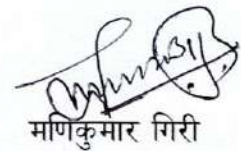 मणिकुमार गिरी